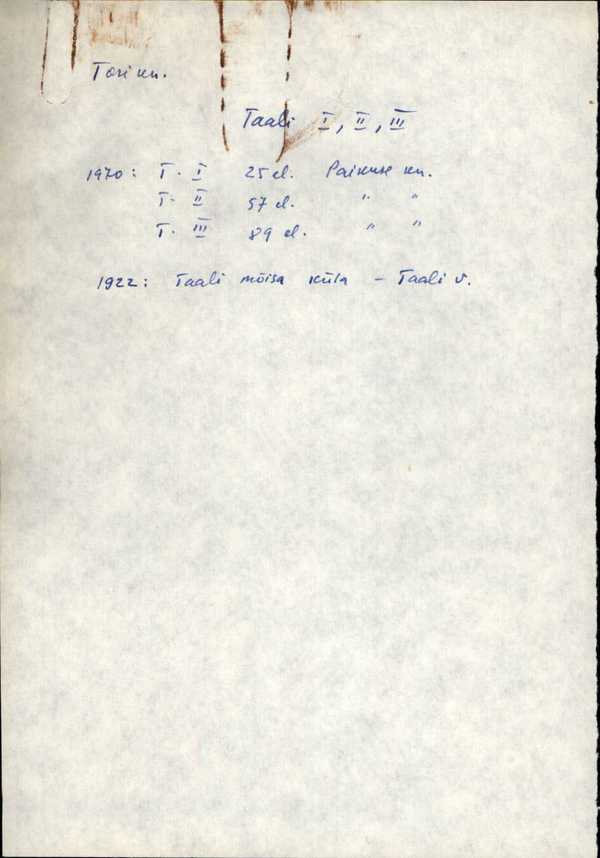 Tori kn.
Taali I, II, III
1970: T. I 25 el. Paikuse kn.
T. II 57 el. " "
T. III 89 el. " "
1922: Taali mõisa küla - Taali v.